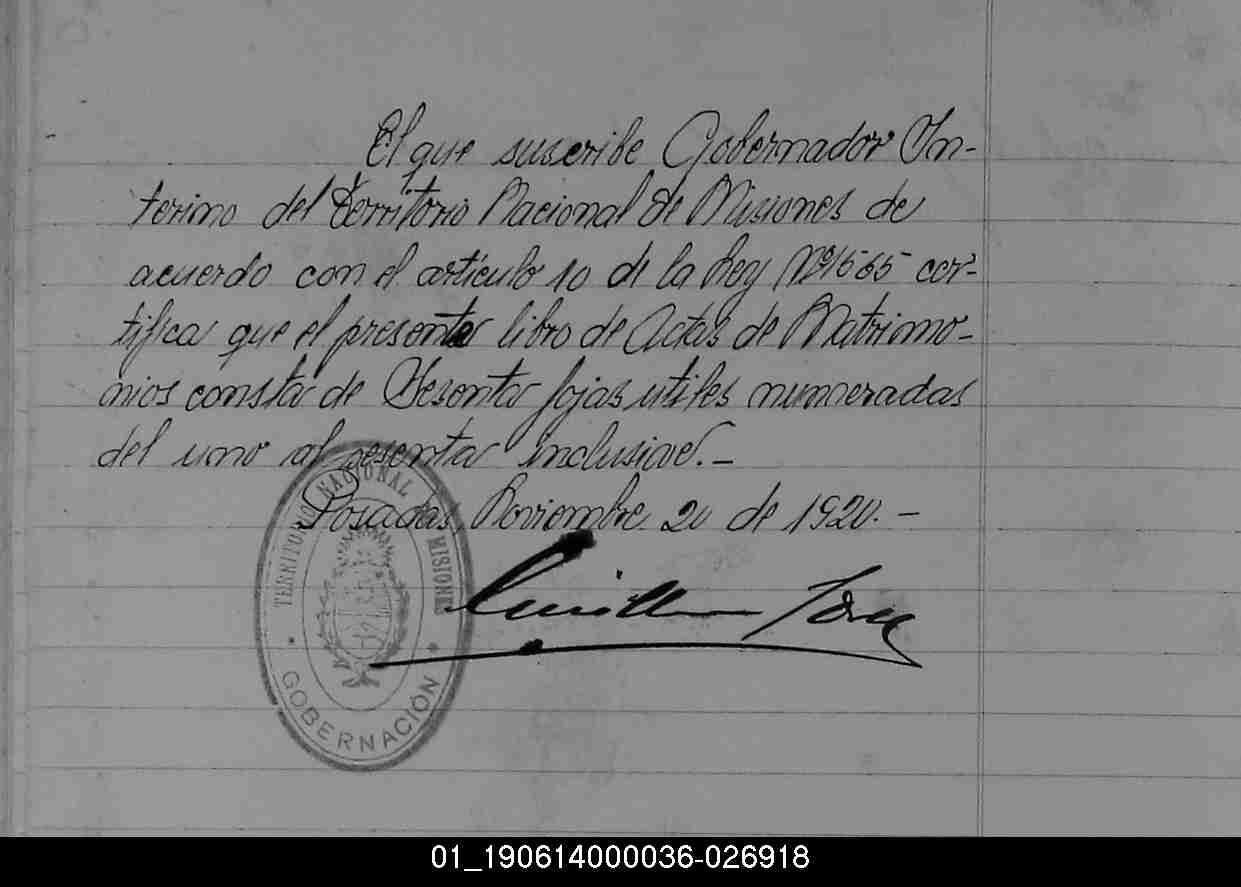 El que suscribe Gobernador In-
terino del Territorio Nacional de Misiones de
acuerdo con el artículo 10 de la Ley Nº 1565 cer-
tifica que el presente libro de Actas de Matrimo-
nios consta de Sesenta fojas utiles numeradas
del uno al sesenta inclusive.-
Posadas, Noviembre 20 de 1920.-
TERRITORIO NACIONAL MISIONES
GOBERNACIÓN
01_190614000036-026918